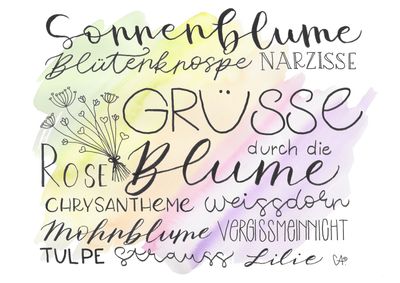 Sonnenblume
Blütenknospe NARZISSE
GRÜSSE
durch die
ROSE Blume
CHRYSANTHEME weissdorn
Mohnblume VERGISSMEINNICHT
TULPE Strauss Lilie